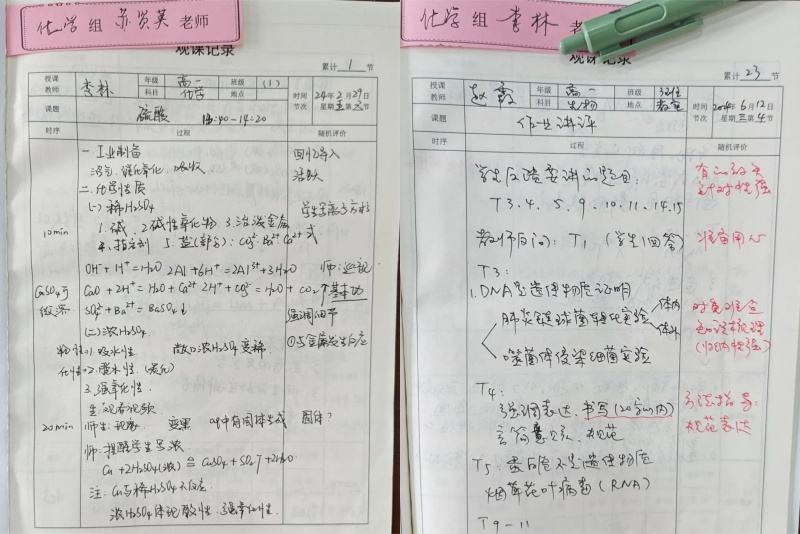 化学 组 苏贤英 老师
观课记录
累计 1 节
授课教师 李林 年级 高一 班级 (1) 时间 24年2月29日
科目 化学 地点 节次 星期
课题 硫酸 13:40-14:20
时序 过程 随机评价
一、工业制备 回忆导入
吸收
二、化学性质
(一) 稀H₂SO₄ 学生写离子方程
10min 1.碱 2.碱性氧化物 3.活泼金属
4.指示剂 5.盐(部分): 式
OH⁻+H⁺=H₂O 2Al+6H⁺=2Al³⁺+3H₂↑ 师:巡视
CaSO₄可 CaO+2H⁺=H₂O+Ca²⁺ 2H⁺+CO₃²⁻=H₂O+CO₂↑ 基本功
微溶 SO₄²⁻+Ba²⁺=BaSO₄↓ 强调细节
(二) 浓H₂SO₄
1.吸水性 浓H₂SO₄变稀 ①与金属发生反应
化性:2.脱水性(炭化)
3.强氧化性
生:观看视频
20min 师生:现象 变黑 中有固体生成 固体?
师:提醒学生写浓
Cu+2H₂SO₄(浓)≜CuSO₄+SO₂↑+2H₂O
注:Cu与稀H₂SO₄不反应
浓H₂SO₄体现酸性、强氧化性.
化学组 李林 老师
观课记录
累计 23 节
授课教师 赵霞 年级 高一 班级
科目 生物 地点 教室
时间 2024年6月12日
节次 星期三第4节
课题 作业讲评
时序 过程 随机评价
学生反馈要讲的题目:
T3.4.5.9.10.11.14.15 针对性强
教师反问:T₁(学生1回答) 准备用心
T3:
1.DNA是遗传物质证明
肺炎链球菌转化实验 体内
体外
噬菌体侵染细菌实验
T4:
强调表达,书写(20字以内) 方法指导:
规范 规范表达
T5:蛋白质不是遗传物质
烟草花叶病毒(RNA)
T9-11